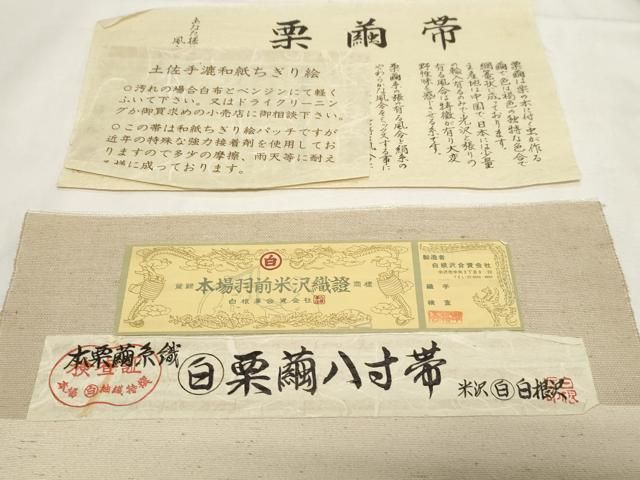 栗繭帯
あなた様
風を
栗繭は栗の木に付く虫が作る
繭で色は褐色の独特な色合で
網蚕状になっております。
主産地は中国で日本には少量
の輸入有るのみで光沢と張りの
有る風合は特徴が有り大変
野性味を感じさせる糸です。
栗繭の張り有る風合と絹糸の
やわらかな風合をミックスする事に
土佐手漉和紙ちぎり絵
○汚れの場合白布とベンジンにて軽く
ふいて下さい。又はドライクリーニン
グか御買求めの小売店に御相談下さい。
○この帯は和紙ちぎり絵パッチですが
近年の特殊な強力接着剤を使用してお
りますので多少の摩擦、雨天等に耐え
る様に成っております。
白
登録 本場羽前米沢織證 商標
白根澤合資会社
製造者
白根沢合資会社
織手
検査
本栗繭糸織
検査証
白
白 栗繭八寸帯
米沢 白 白根沢